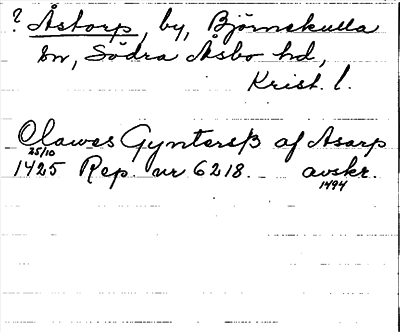 ? Åstorp, by, Björnekulla
sn, Södra Åsbo hd,
Krist. l.
Olawes Gyntersß af Asarp
25/10
1425 Rep. nr 6218. avskr.
1494